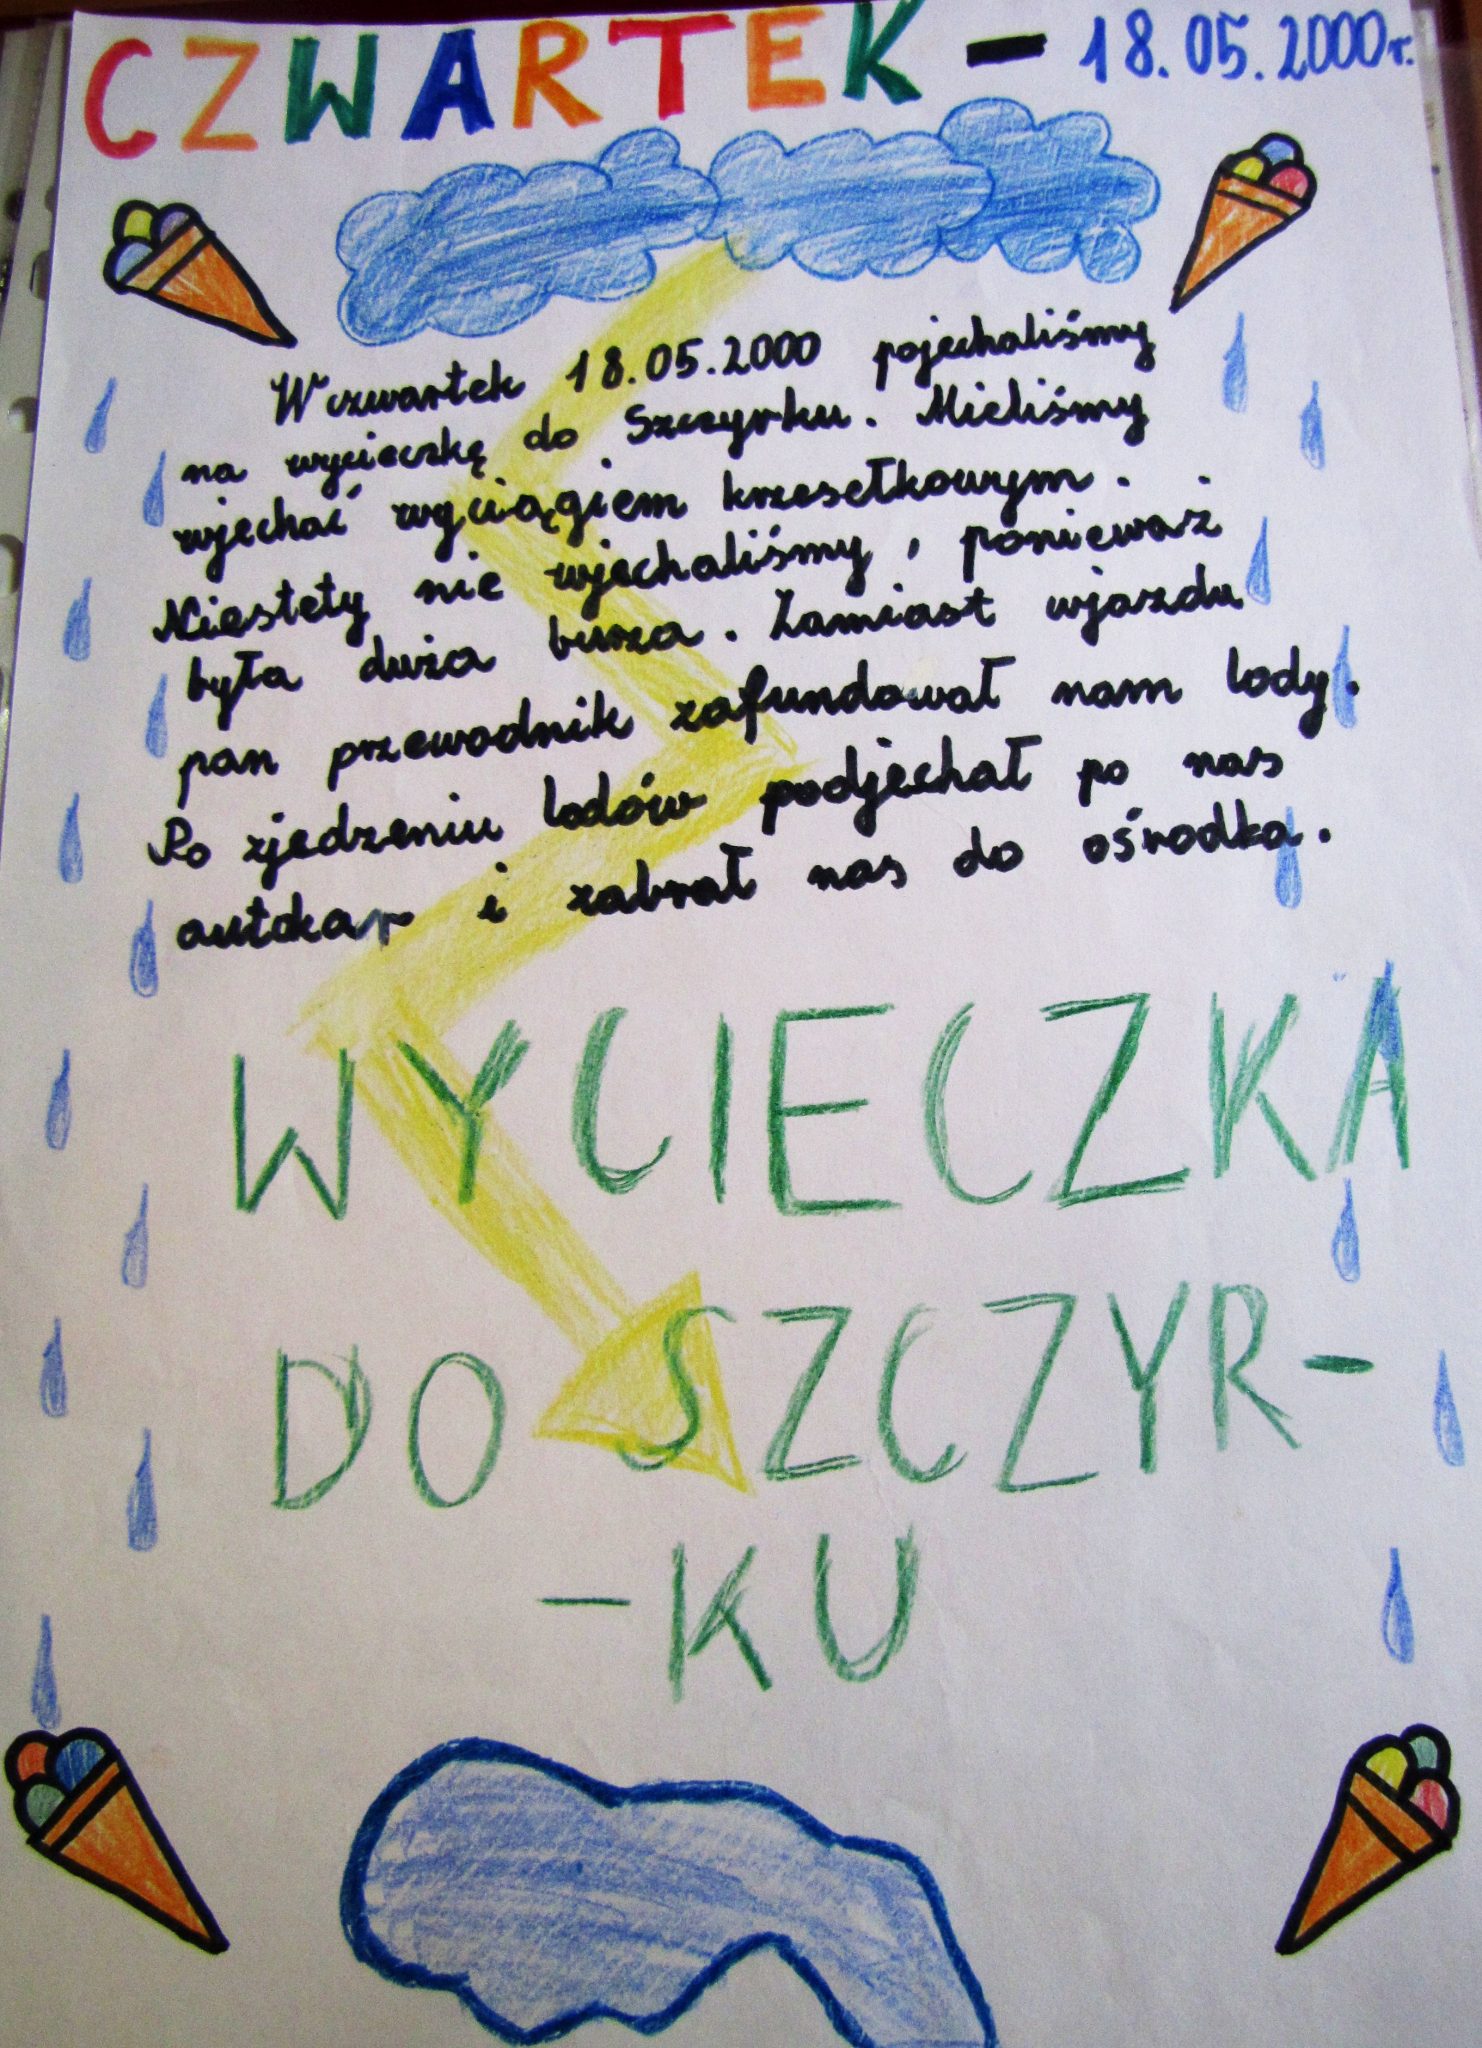 CZWARTEK - 18.05.2000r.
W czwartek 18.05.2000 pojechaliśmy
na wycieczkę do Szczyrku. Mieliśmy
wjechać wyciągiem krzesełkowym.
Niestety nie wjechaliśmy, ponieważ
była duża burza. Zamiast wjazdu
pan przewodnik zafundował nam lody.
Po zjedzeniu lodów podjechał po nas
autokar i zabrał nas do ośrodka.
WYCIECZKA
DO SZCZYR-
-KU